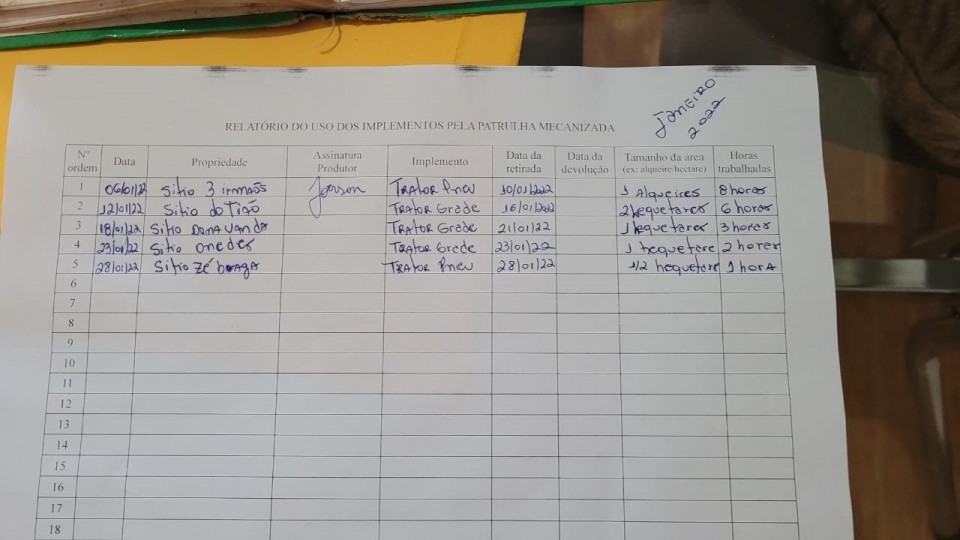 JANEIRO
2022
RELATÓRIO DO USO DOS IMPLEMENTOS PELA PATRULHA MECANIZADA
Nº ordem Data Propriedade Assinatura Produtor Implemento Data da retirada Data da devolução Tamanho da área (ex: alqueire/hectare) Horas trabalhadas
1 06/01/22 Sitio 3 irmãos TRATOR Pneu 10/01/2022 1 Alqueires 8 horas
2 12/01/22 Sitio do Tião TRATOR Grade 16/01/2022 2 hequetares 6 horas
3 18/01/22 Sitio Dona vanda TRATOR Grade 21/01/22 1 hequetares 3 horas
4 23/01/22 Sitio onedes TRATOR Grede 23/01/22 1 hequetare 2 horas
5 28/01/22 Sitio Zé braga TRATOR Pneu 28/01/22 1/2 hequetare 1 horA
6
7
8
9
10
11
12
13
14
15
16
17
18